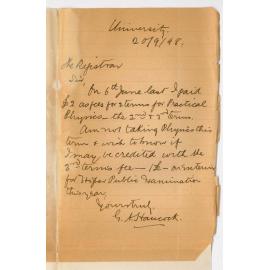 University,
20/9/98.
The Registrar
Sir
On 6th June last I paid
£2 as fees for 2 terms for Practical
Physics – the 2nd & 3rd terms.
Am not taking Physics this
term & wish to know if
I may be credited with the
3rd terms fee – £1 – on entering
for Public Examination
this year.
Yours truly,
G. A. Hancock.